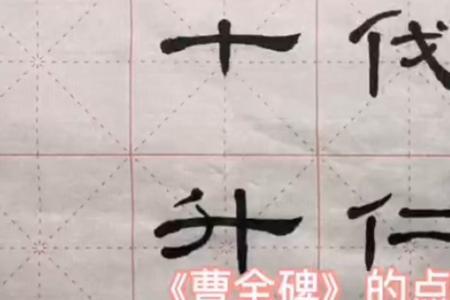 十伐
升仁
《曹全碑》的点